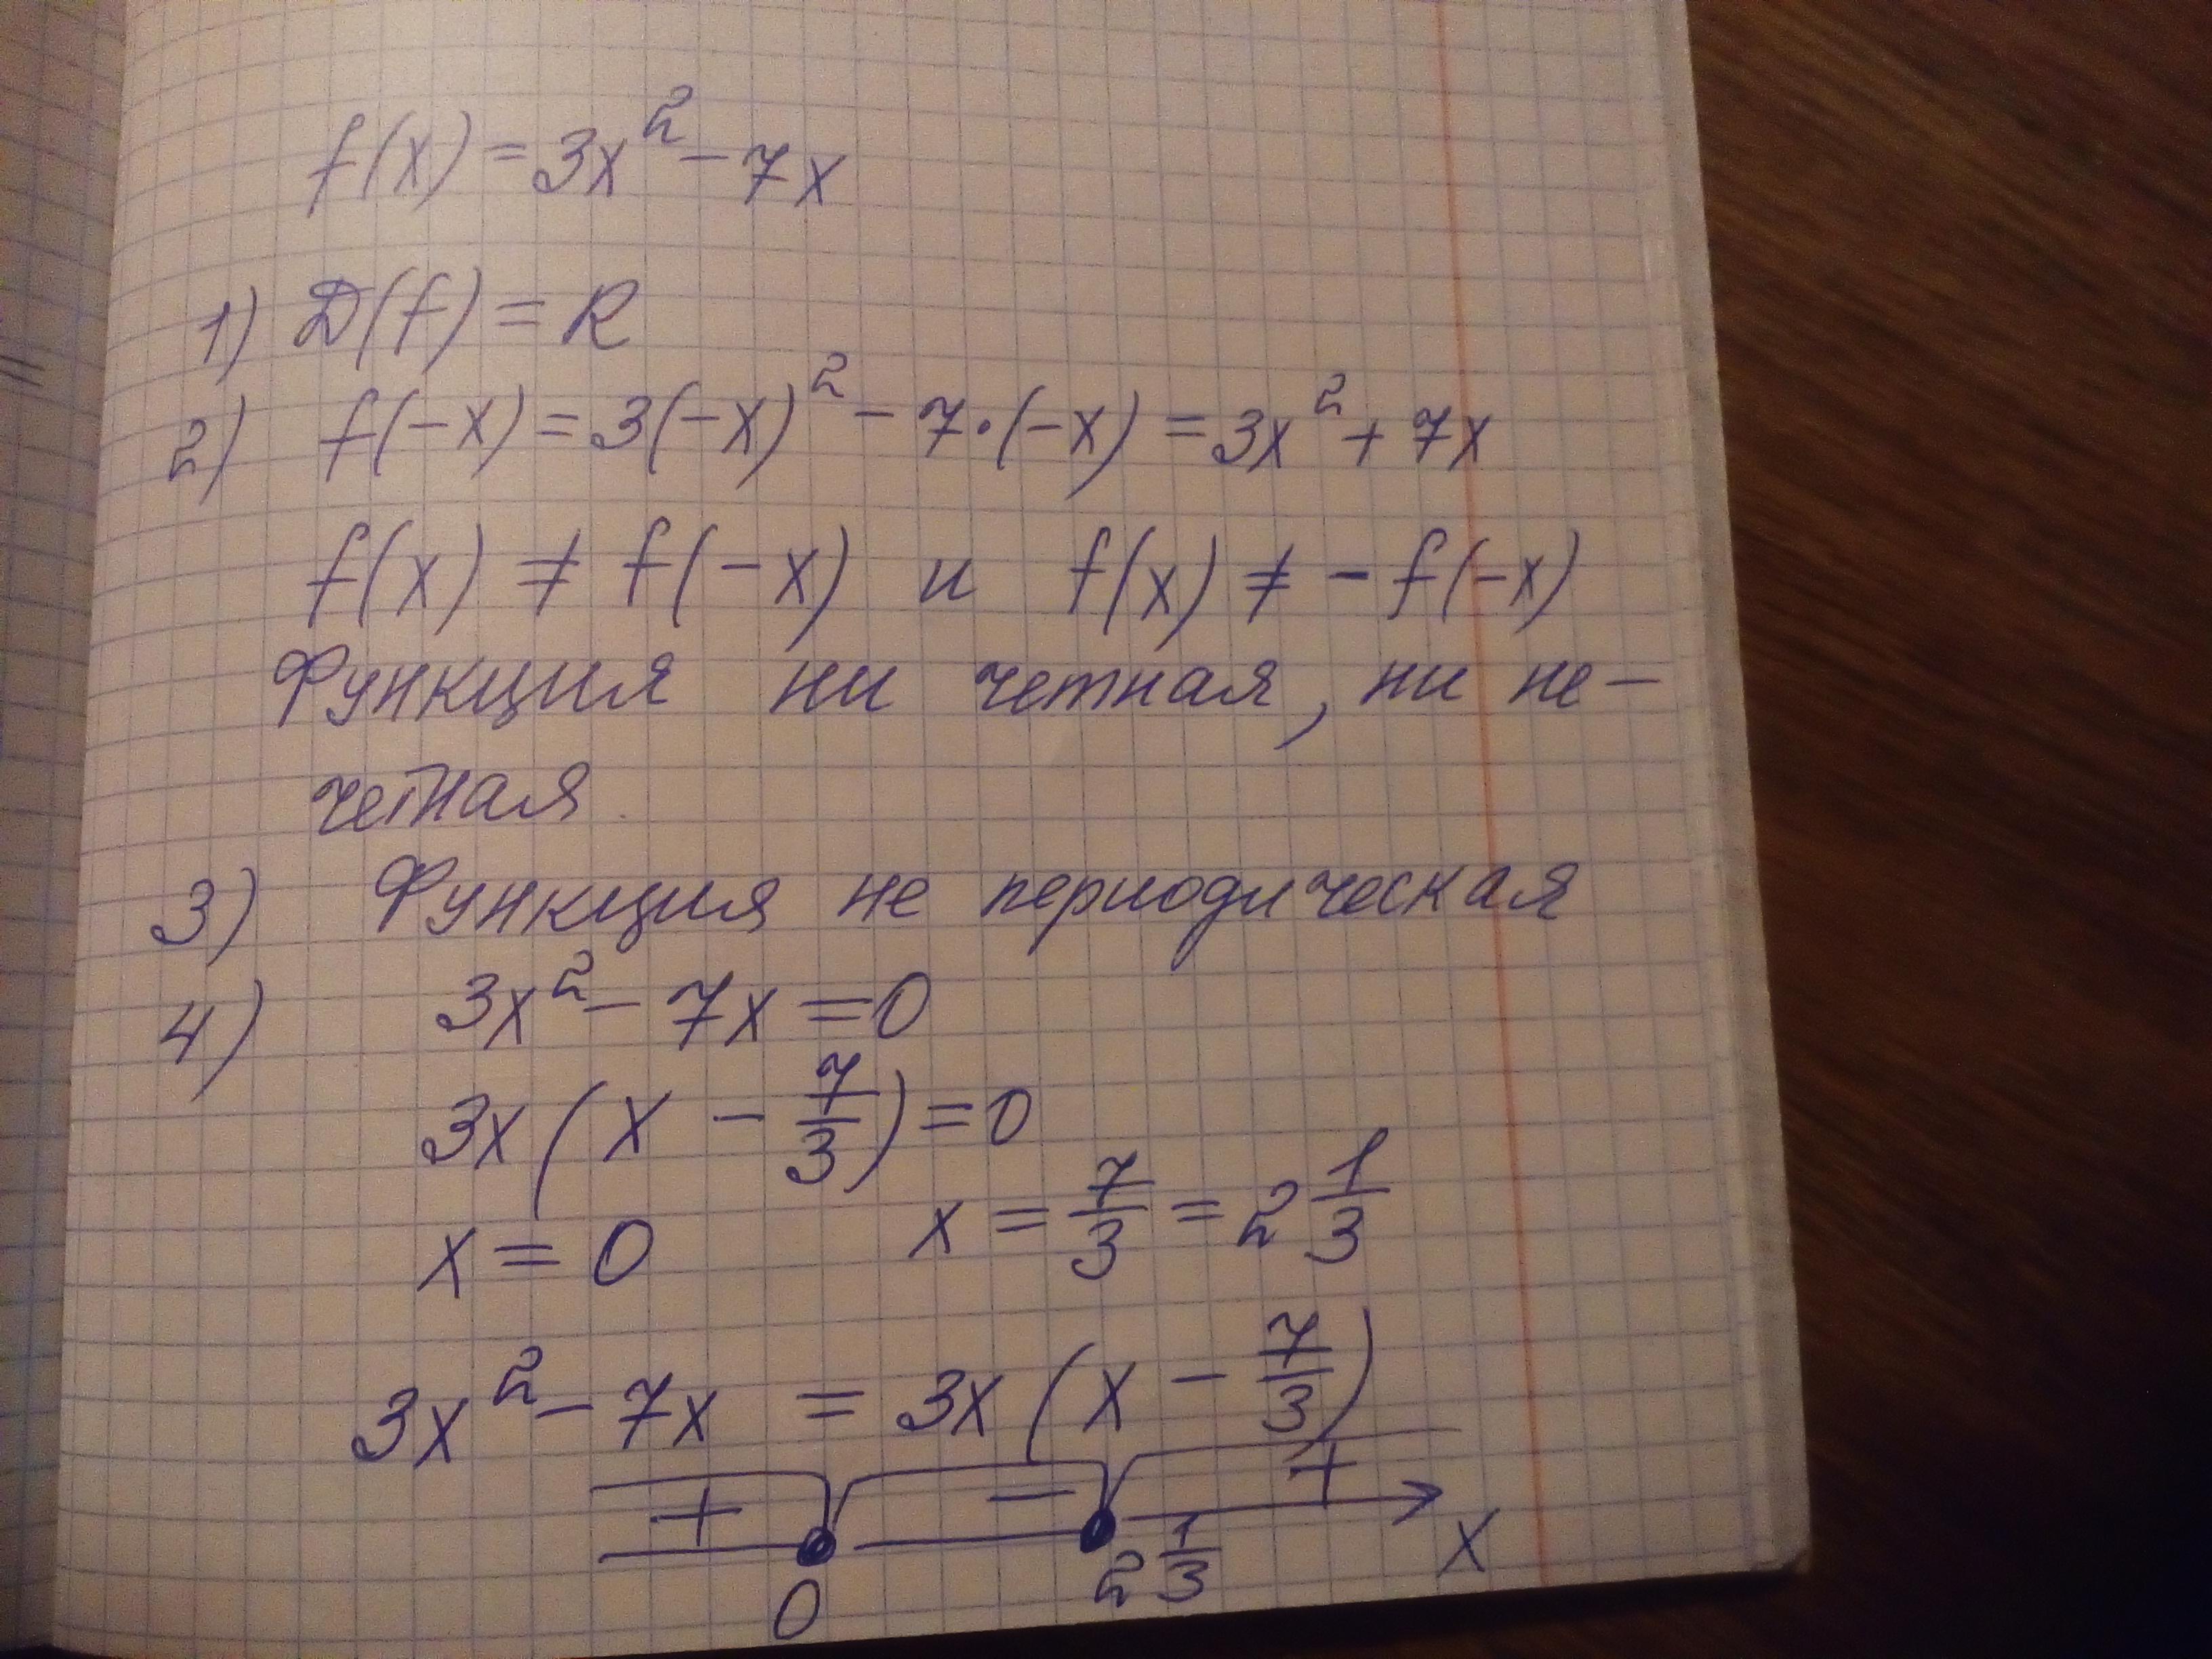 f(x) = 3x² - 7x
1) D(f) = R
2) f(-x) = 3(-x)² - 7·(-x) = 3x² + 7x
f(x) ≠ f(-x) и f(x) ≠ -f(-x)
Функция ни четная, ни не-
четная.
3) Функция не периодическая
4) 3x² - 7x = 0
3x(x - 7/3) = 0
x = 0 x = 7/3 = 2 1/3
3x² - 7x = 3x(x - 7/3)
+ - +
0 2 1/3 x